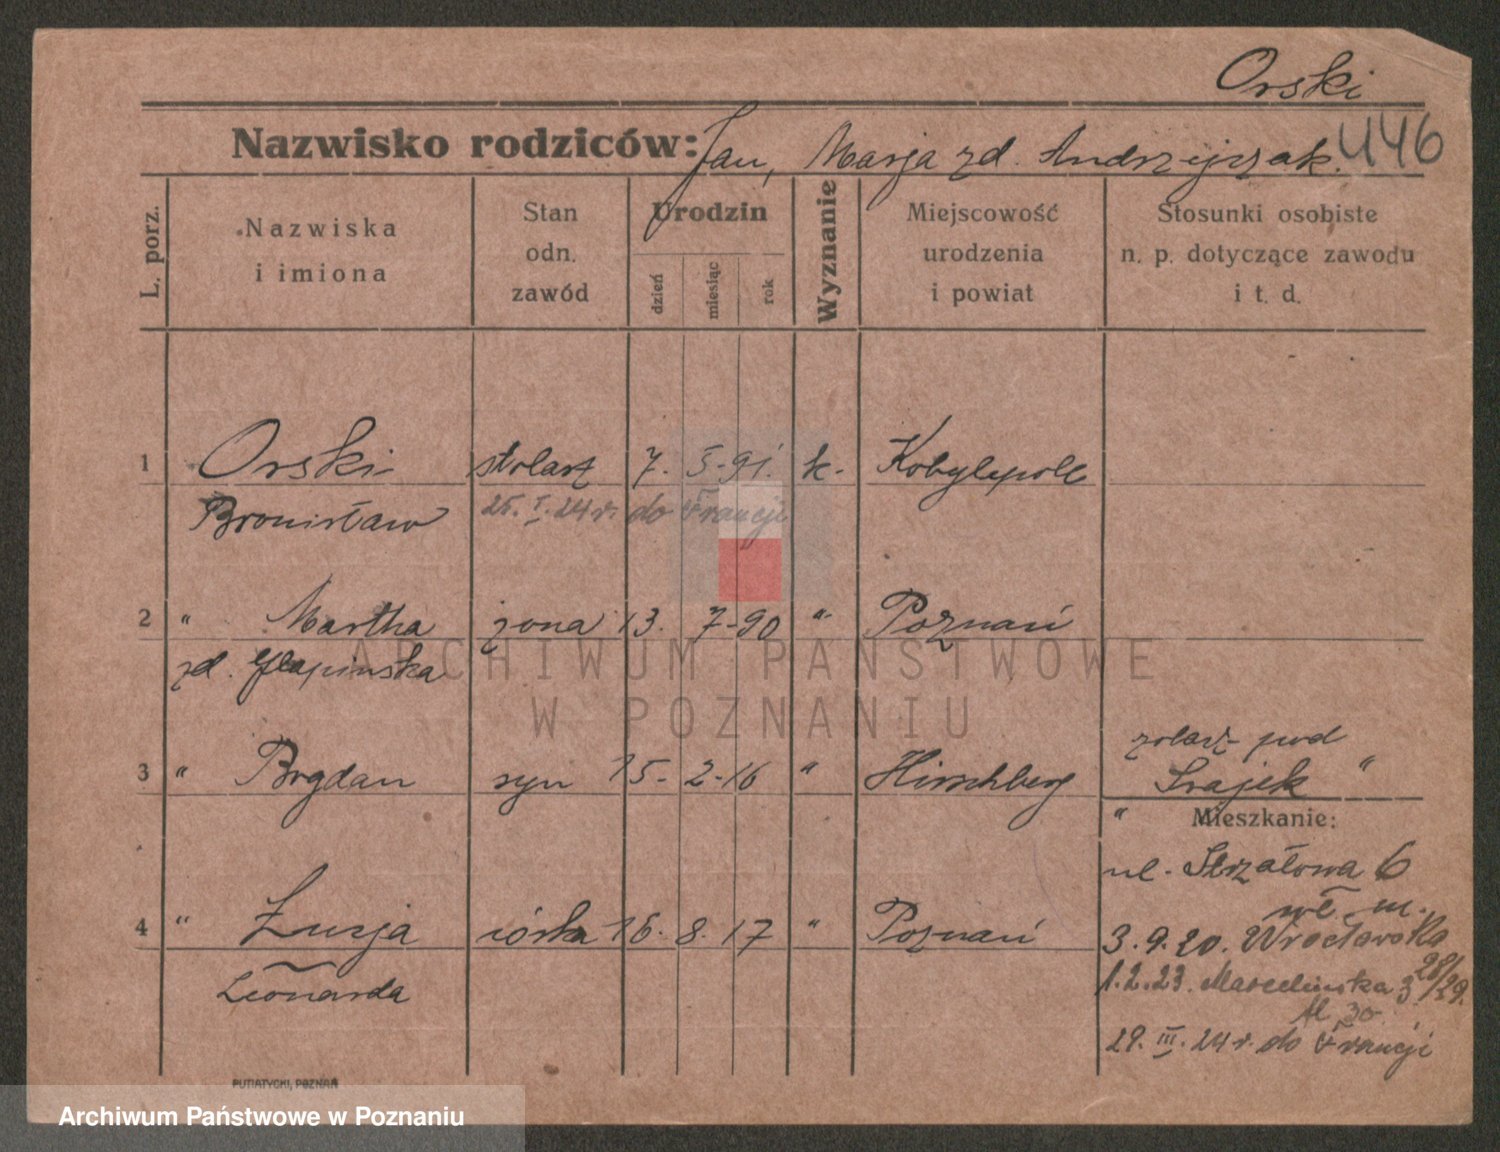 Orski
Nazwisko rodziców: Jan, Marja zd. Andrzejczak. 446
L. porz.
Nazwiska
i imiona
Stan
odn.
zawód
Urodzin
dzień
miesiąc
rok
Wyznanie
Miejscowość
urodzenia
i powiat
Stosunki osobiste
n. p. dotyczące zawodu
i t. d.
1 Orski stolarz 7. 5. 91. k. Kobylepole
Bronisław 25. I. 24 r. do Francji
2 " Martha żona 13. 7-90 " Poznań
zd. Glapinska
ARCHIWUM PAŃSTWOWE
W POZNANIU
3 " Bogdan syn 15- 2-16 " Hirschberg
Mieszkanie:
ul. Strzałowa 6
4 " Łucja córka 16. 8. 17 " Poznań
Leonarda
3.9.20. Wrocławska
28/29.
1.2.23. Marcelinska 3
29. III. 24 r. do Francji
PUTIATYCKI, POZNAŃ
Archiwum Państwowe w Poznaniu